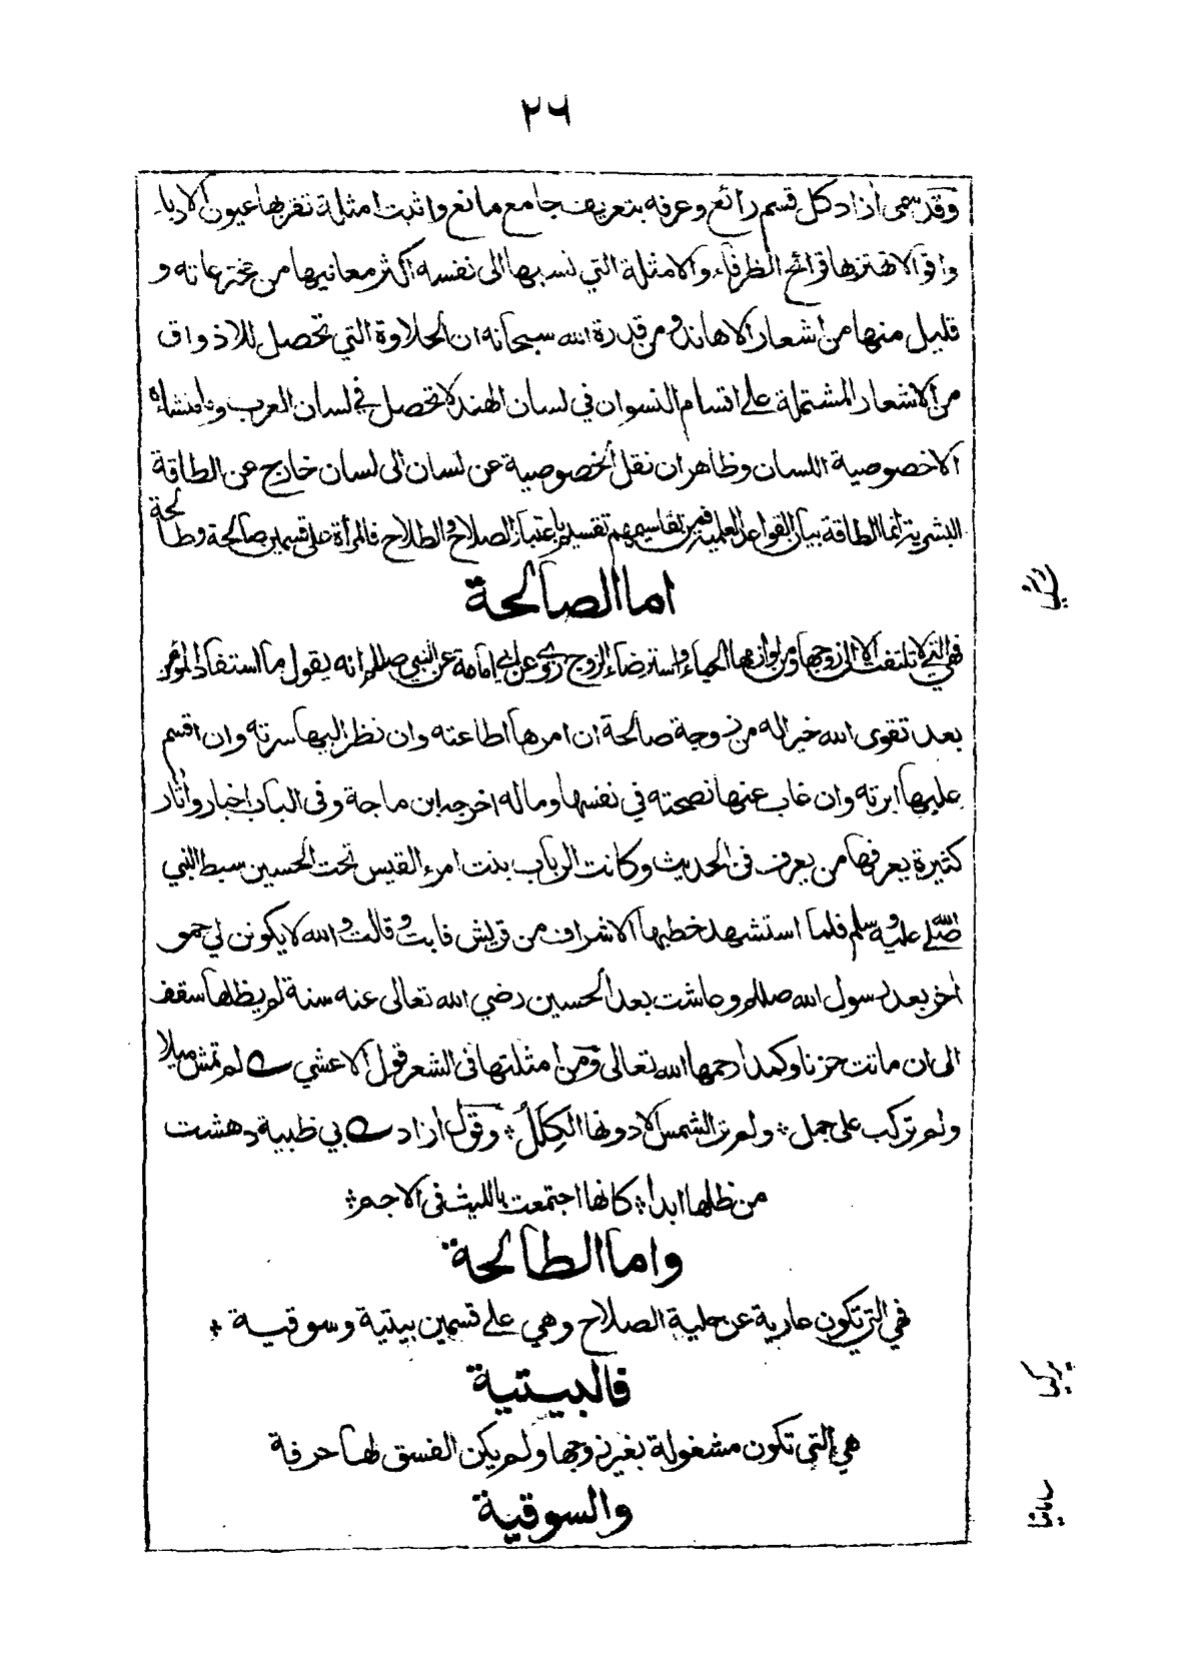 ٢٦
وقد سمى ازاد كل قسم رائع وعرفه بتعريف جامع مانع واثبت امثلة تقر بها عيون الادباء
واقوالا تهتز بها قرائح الظرفاء والامثلة التي نسبها الى نفسه اكثر معانيها من مخترعاته و
قليل منها من اشعار الاهاند ومن قدرة الله سبحانه ان الحلاوة التي تحصل للاذواق
من الاشعار المشتملة على اقسام النسوان في لسان الهند لا تحصل في لسان العرب وما منشاءه
الا خصوصية اللسان وظاهر ان نقل الخصوصية عن لسان الى لسان خارج عن الطاقة
البشرية انما الطاقة بيان القواعد العلمية فمن تقاسيمهم تقسيم باعتبار الصلاح والطلاح فالمرأة على قسمين صالحة وطالحة
اما الصالحة
فهي التي لا تلتفت الا الى زوجها ومن لوازمها الحياء واسترضاء الزوج روي عن ابي امامة عن النبي صللم انه يقول ما استفاد المؤمن
بعد تقوى الله خيرا له من زوجة صالحة ان امرها اطاعته وان نظر اليها سرته وان اقسم
عليها ابرته وان غاب عنها نصحته في نفسها وماله اخرجه ابن ماجة وفى الباب اخبار واثار
كثيرة يعرفها من يعرف فن الحديث وكانت الرباب بنت امرء القيس تحت الحسين سبط النبي
صلى الله عليه وسلم فلما استشهد خطبها الاشراف من قريش فابت وقالت والله لا يكونن لي حمو
اخر بعد رسول الله صللم وعاشت بعد الحسين رضي الله تعالى عنه سنة لم يظلها سقف
الى ان ماتت حزنا وكمدا رحمها الله تعالى ومن امثلتها فى الشعر قول الاعشي لم تمش ميلا
ولم تركب على جمل ولم تر الشمس الا دونها الكلل وقول ازاد بي ظبية دهشت
من ظلها ابدا كانها اجتمعت بالليث فى الاجم
واما الطالحة
فهي التي تكون عارية عن حلية الصلاح وهي على قسمين بيتية وسوقية
فالبيتية
هي التي تكون مشغولة بغير زوجها ولم يكن الفسق لها حرفة
والسوقية